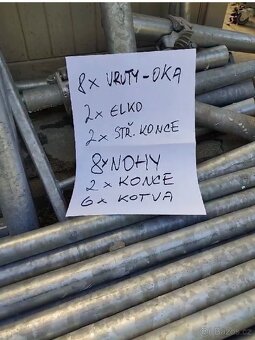 8x VRUTY-OKA
2x ELKO
2x STŘ. KONCE
8x NOHY
2x KONCE
6x KOTVA
© Bazos.cz